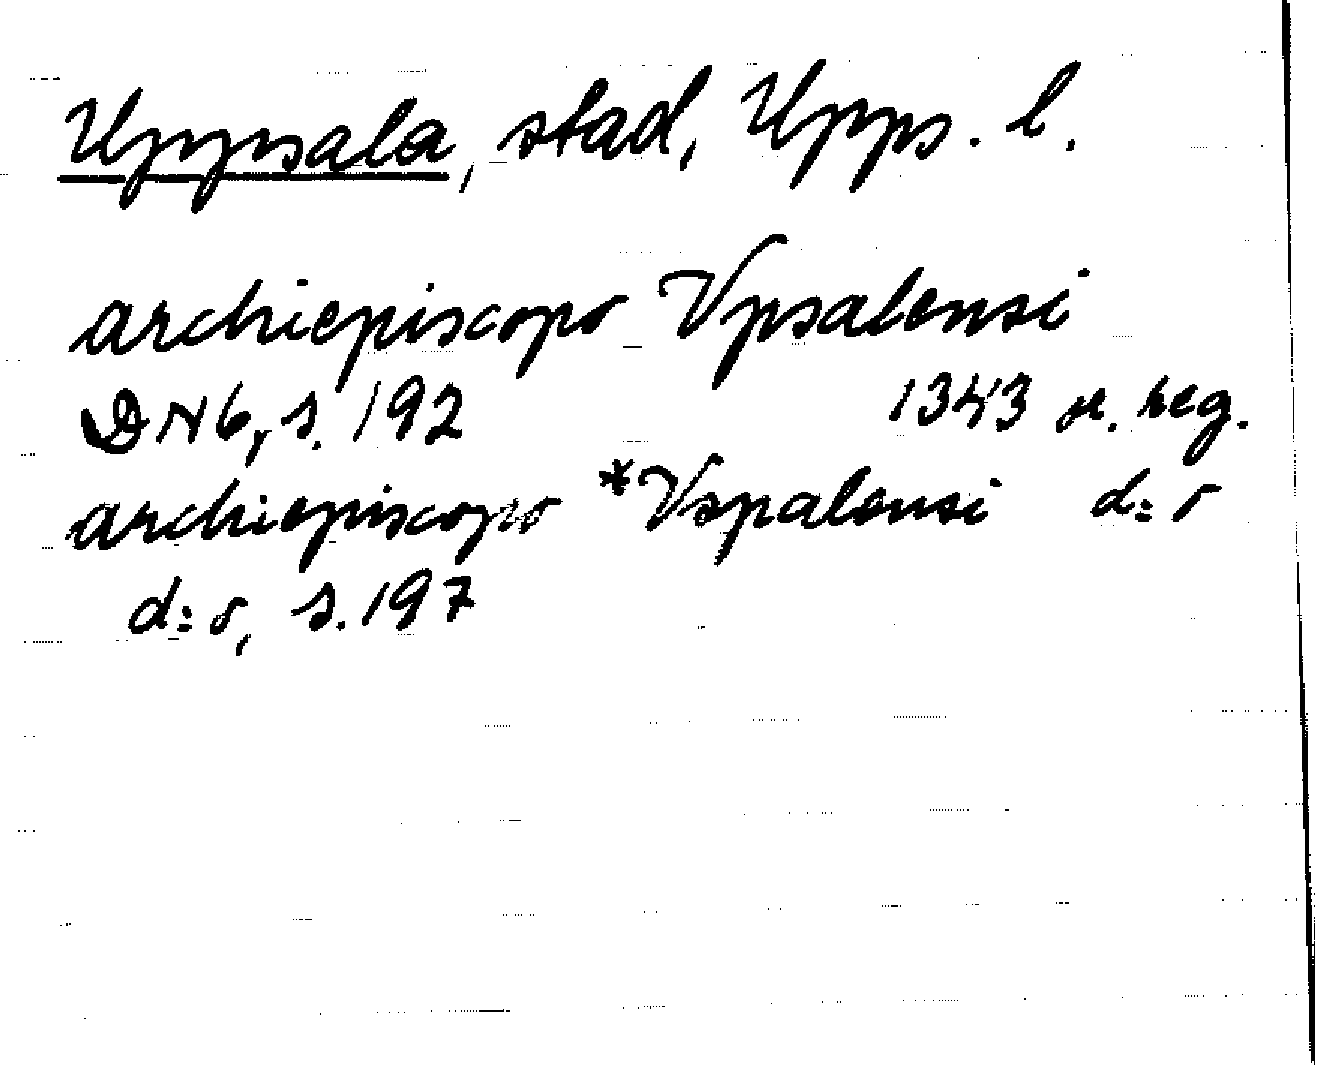 Uppsala, stad, Upps. l.
archiepiscopo Vpsalensi
DN 6, s. 192 1343 or. reg.
archiepiscopo *Vspalensi d:o
d:o, s. 197